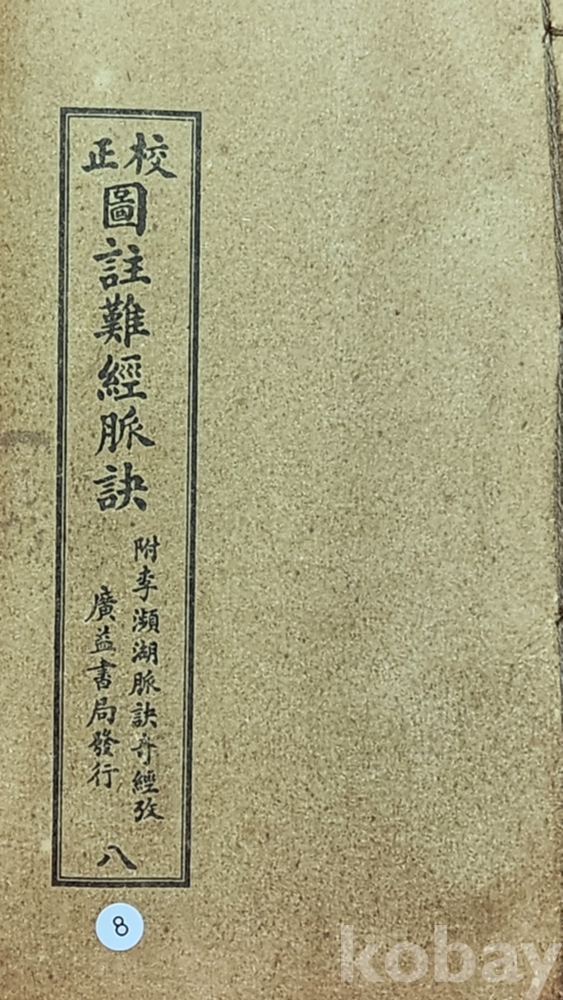 校正
圖註難經脈訣
附李瀕湖脈訣奇經攷
廣益書局發行
八
8
kobay